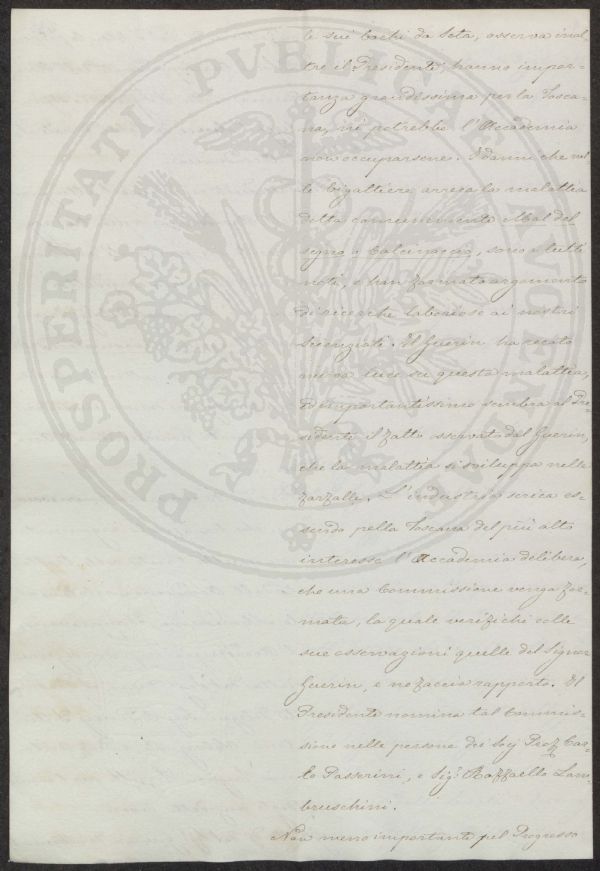 le sui bachi da Seta, osserva inol-
tre il Presidente, hanno impor-
tanza grandissima per la Tosca-
na, nè potrebbe l'Accademia
non occuparsene. I danni che nel-
le bigattiere arreca la malattia
detta comunemente Mal del
segno o Calcinaccio, sono a tutti
noti, e han formato argomento
di ricerche laboriose ai nostri
scienziati. Il Guerin ha recato
nuova luce su questa malattia,
ed importantissimo sembra al Pre-
sidente il fatto osservato dal Guerin,
che la malattia si sviluppa nelle
farfalle. L'industria serica es-
sendo nella Toscana del più alto
interesse l'Accademia delibera,
che una Commissione venga for-
mata, la quale verifichi colle
sue osservazioni quelle del Signor
Guerin, e ne faccia rapporto. Il
Presidente nomina tal Commis-
sione nelle persone dei Socj Prof. Car-
lo Passerini, e Sig. Raffaello Lam-
bruschini.
Non meno importante pel Progresso
PROSPERITATI PVBLICAE AVGENDAE